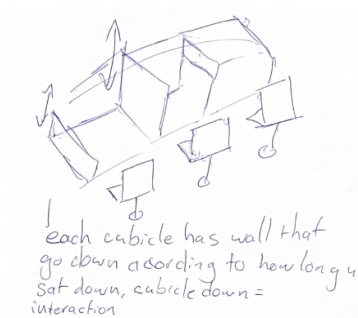 each cubicle has wall that
go down acording to how long u
sat down, cubicle down =
interaction